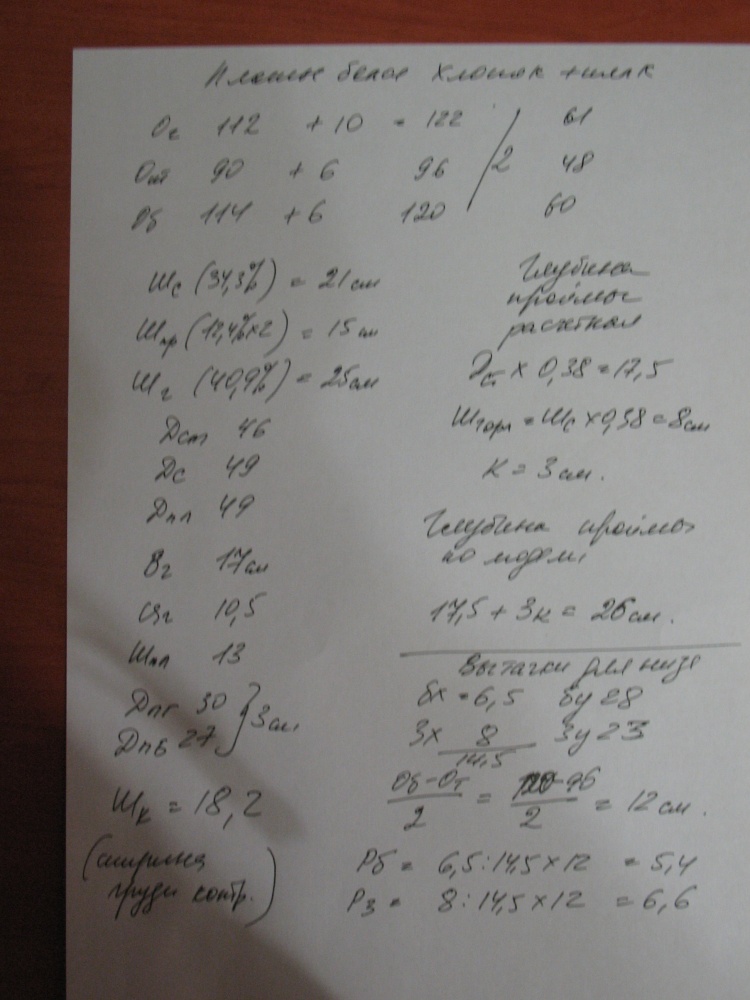 Платье белое хлопок + шелк
Ог 112 + 10 = 122 / 2 61
От 90 + 6 96 48
Об 114 + 6 120 60
Шс (34,3%) = 21 см
Шпр (12,4% x 2) = 15 см
Шг (40,9%) = 25 см
Дст 46
Дс 49
Дпл 49
Вг 17 см
Цг 10,5
Шпл 13
Дпг 30 } 3 см
Дпб 27
Шк = 18,2
(ширина
груди контр.)
Глубина
проймы
расчетная
x 0,38 = 17,5
Шгорл = Шс x 0,38 = 8 см
К = 3 см.
Глубина проймы
по модели
17,5 + 3к = 26 см.
Вытачки для низа
бх = 6,5 бу 28
Зх 8 Зу 23
14,5
Об-От / 2 = 120-96 / 2 = 12 см.
Рб = 6,5 : 14,5 x 12 = 5,4
Рз = 8 : 14,5 x 12 = 6,6